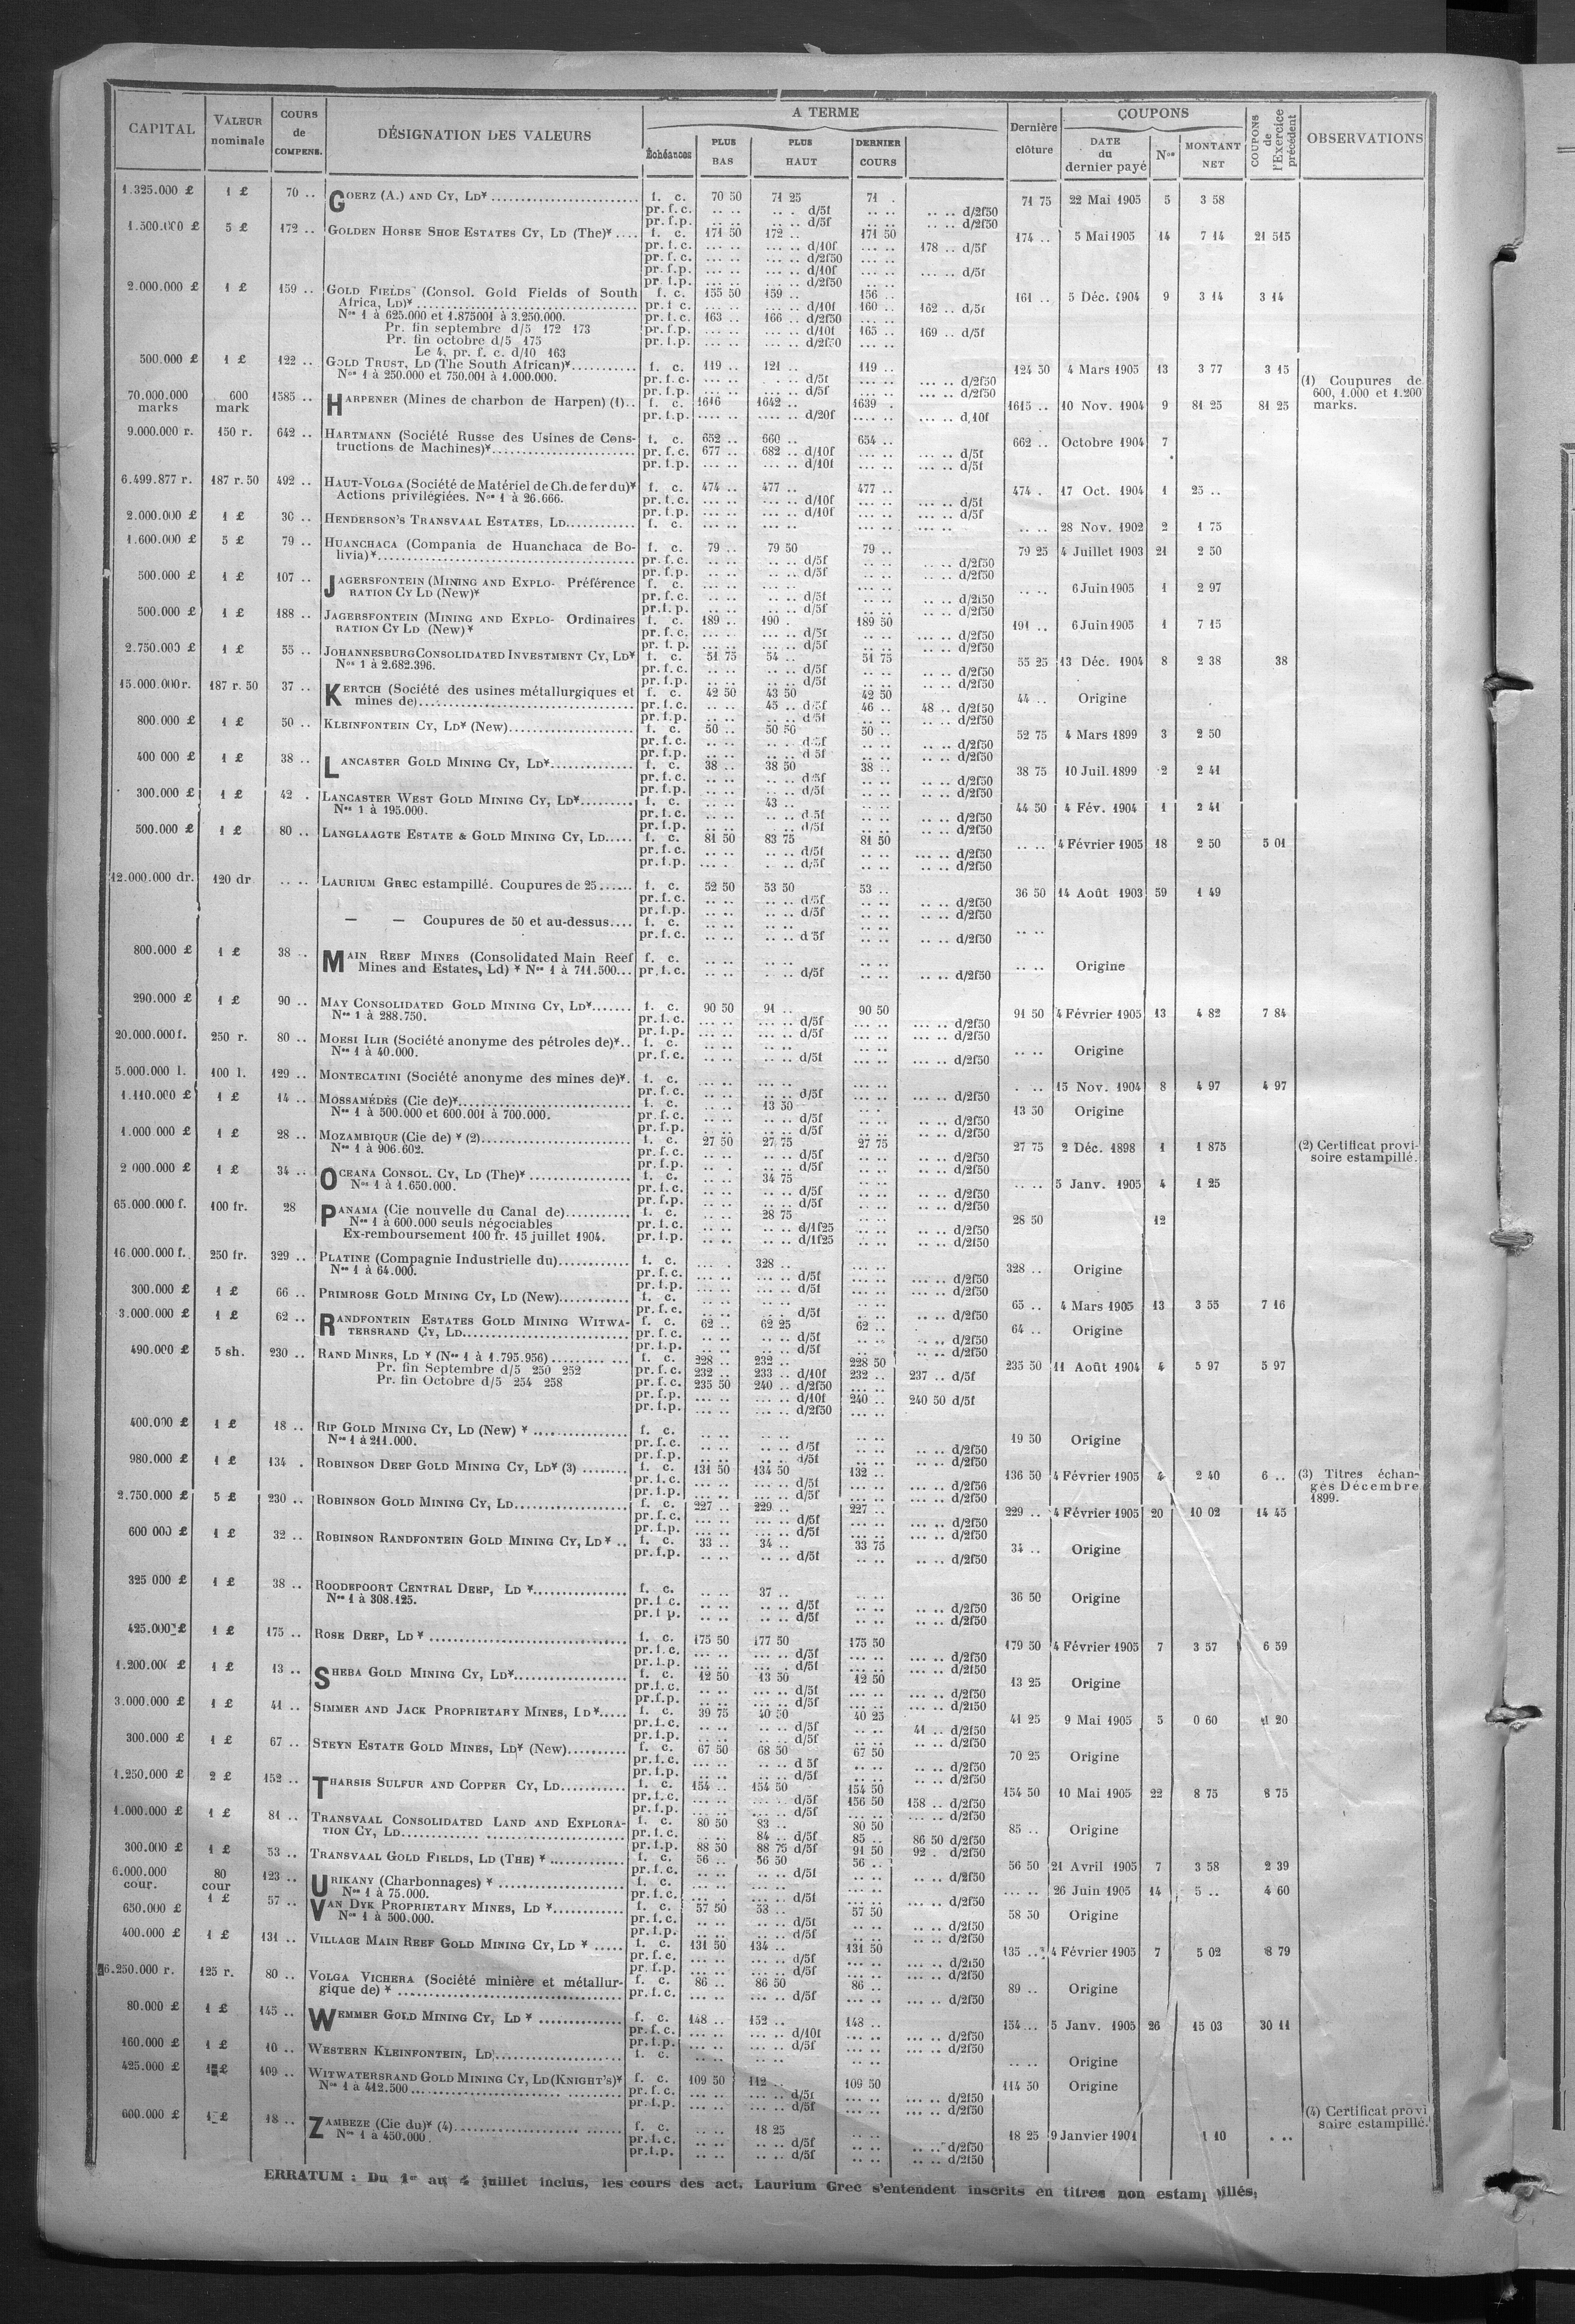 CAPITAL | VALEUR nominale | COURS de COMPENS. | DÉSIGNATION DES VALEURS | A TERME | Dernière clôture | COUPONS | COUPONS de l'Exercice précédent | OBSERVATIONS
Échéances | PLUS BAS | PLUS HAUT | DERNIER COURS | DATE du dernier payé | Nos | MONTANT NET
1.325.000 £ 1 £ 70 .. GOERZ (A.) AND CY, LD* f. c. 70 50 71 25 71 . 71 75 22 Mai 1905 5 3 58
pr. f. c. .. .. .. . d/5f .. .. .. .. d/2f50
pr. f. p. .. .. .. .. d/5f .. .. .. .. d/2f50
1.500.000 £ 5 £ 172 .. GOLDEN HORSE SHOE ESTATES CY, LD (The)* f. c. 171 50 172 .. 171 50 174 .. 5 Mai 1905 14 7 14 21 515
pr. f. c. ... .. ... .. d/10f ... .. 178 .. d/5f
pr. f. c. ... .. ... .. d/2f50 ... ..
pr. f. p. ... .. ... .. d/10f ... .. ... .. d/5f
pr. f. p. ... .. ... .. d/2f50 ... ..
2.000.000 £ 1 £ 159 .. GOLD FIELDS (Consol. Gold Fields of South f. c. 155 50 159 .. 156 .. 161 .. 5 Déc. 1904 9 3 14 3 14
Africa, LD)* pr. f. c. ... .. ... .. d/10f 160 .. 162 .. d/5f
Nos 1 à 625.000 et 1.875001 à 3.250.000. pr. f. c. 163 .. 166 .. d/2f50 ... ..
Pr. fin septembre d/5 172 173 pr. f. p. ... .. ... .. d/10f 165 .. 169 .. d/5f
Pr. fin octobre d/5 175 pr. f. p. ... .. ... .. d/2f50 ... ..
Le 4, pr. f. c. d/10 163
500.000 £ 1 £ 122 .. GOLD TRUST, LD (The South African)* f. c. 119 .. 121 .. 119 .. 124 50 4 Mars 1905 13 3 77 3 15
Nos 1 à 250.000 et 750.001 à 1.000.000. pr. f. c. ... .. . .. d/5f ... .. ... .. d/2f50
pr. f. p. ... .. ... .. d/5f ... .. ... .. d/2f50
(1) Coupures de
600, 1.000 et 1.200
marks.
70.000.000 marks 600 mark 1585 .. HARPENER (Mines de charbon de Harpen) (1).. f. c. 1616 1642 .. 1639 . 1615 .. 10 Nov. 1904 9 81 25 81 25
pr. f. p. .... .. .... .. d/20f .... .. .... .. d/10f
9.000.000 r. 150 r. 642 .. HARTMANN (Société Russe des Usines de Cons- f. c. 652 .. 660 .. 654 .. 662 .. Octobre 1904 7
tructions de Machines)* pr. f. c. 677 .. 682 .. d/10f ... .. ... .. d/5f
pr. f. p. ... .. ... .. d/10f ... .. ... .. d/5f
6.499.877 r. 187 r. 50 492 .. HAUT-VOLGA (Société de Matériel de Ch. de fer du)* f. c. 474 .. 477 .. 477 .. 474 . 17 Oct. 1904 1 25 ..
Actions privilégiées. Nos 1 à 26.666. pr. f. c. ... .. ... .. d/10f ... .. ... .. d/5f
pr. f. p. ... .. ... .. d/10f ... .. ... .. d/5f
2.000.000 £ 1 £ 30 .. HENDERSON'S TRANSVAAL ESTATES, LD f. c. ... .. ... .. ... .. .. .. 28 Nov. 1902 2 1 75
1.600.000 £ 5 £ 79 .. HUANCHACA (Compania de Huanchaca de Bo- f. c. 79 .. 79 50 79 .. 79 25 4 Juillet 1903 21 2 50
livia)* pr. f. c. .. .. .. .. d/5f .. .. .. .. d/2f50
pr. f. p. .. .. .. .. d/5f .. .. .. .. d/2f50
500.000 £ 1 £ 107 .. JAGERSFONTEIN (MINING AND EXPLO- Préférence f. c. ... .. ... .. ... .. .. .. 6 Juin 1905 1 2 97
RATION CY LD (New)* pr. f. c. .. .. .. .. d/5f .. .. .. .. d/2f50
pr. f. p. .. .. .. .. d/5f .. .. .. .. d/2f50
500.000 £ 1 £ 188 .. JAGERSFONTEIN (MINING AND EXPLO- Ordinaires f. c. 189 .. 190 . 189 50 191 .. 6 Juin 1905 1 7 15
RATION CY LD (New)* pr. f. c. ... .. ... .. d/5f .. .. ... .. d/2f50
pr. f. p. ... .. ... .. d/5f .. .. ... .. d/2f50
2.750.000 £ 1 £ 55 .. JOHANNESBURG CONSOLIDATED INVESTMENT CY, LD* f. c. 51 75 54 .. 51 75 55 25 13 Déc. 1904 8 2 38 38
Nos 1 à 2.682.396. pr. f. c. .. .. .. .. d/5f .. .. .. .. d/2f50
pr. f. p. .. .. .. .. d/5f .. .. .. .. d/2f50
15.000.000 r. 187 r. 50 37 .. KERTCH (Société des usines métallurgiques et f. c. 42 50 43 50 42 50 44 .. Origine
mines de) pr. f. c. .. .. 45 .. d/5f 46 .. 48 .. d/2f50
pr. f. p. .. .. .. .. d/5f .. .. .. .. d/2f50
800.000 £ 1 £ 50 .. KLEINFONTEIN CY, LD* (New) f. c. 50 .. 50 50 50 .. 52 75 4 Mars 1899 3 2 50
pr. f. c. .. .. .. .. d/5f .. .. .. .. d/2f50
pr. f. p. .. .. .. .. d/5f .. .. .. .. d/2f50
400 000 £ 1 £ 38 .. LANCASTER GOLD MINING CY, LD* f. c. 38 .. 38 50 38 .. 38 75 10 Juil. 1899 2 2 41
pr. f. c. .. .. .. .. d/5f .. .. .. .. d/2f50
pr. f. p. .. .. .. .. d/5f .. .. .. .. d/2f50
300.000 £ 1 £ 42 . LANCASTER WEST GOLD MINING CY, LD* f. c. .. .. 43 .. .. .. 44 50 4 Fév. 1904 1 2 41
Nos 1 à 195.000. pr. f. c. .. .. .. .. d/5f .. .. .. .. d/2f50
pr. f. p. .. .. .. .. d/5f .. .. .. .. d/2f50
500.000 £ 1 £ 80 .. LANGLAAGTE ESTATE & GOLD MINING CY, LD f. c. 81 50 83 75 81 50 .. .. 4 Février 1905 18 2 50 5 01
pr. f. c. .. .. .. .. d/5f .. .. ... .. d/2f50
pr. f. p. ... . .. .. d/5f .. .. ... .. d/2f50
12.000.000 dr. 120 dr .. .. LAURIUM GREC estampillé. Coupures de 25 f. c. 52 50 53 50 53 .. 36 50 14 Août 1903 59 1 49
pr. f. c. .. .. .. .. d/5f .. .. .. .. d/2f50
pr. f. p. .. .. .. .. d/5f .. .. .. .. d/2f50
— — Coupures de 50 et au-dessus.... f. c. .. .. .. .. .. .. .. ..
pr. f. c. .. .. .. .. d/5f .. .. .. .. d/2f50
800.000 £ 1 £ 38 .. MAIN REEF MINES (Consolidated Main Reef f. c. .. .. .. .. .. .. .. .. Origine
Mines and Estates, Ld) * Nos 1 à 711.500... pr. f. c. .. .. .. .. d/5f .. .. .. .. d/2f50
290.000 £ 1 £ 90 .. MAY CONSOLIDATED GOLD MINING CY, LD* f. c. 90 50 91 .. 90 50 91 50 4 Février 1905 13 4 82 7 84
Nos 1 à 288.750. pr. f. c. ... .. ... .. d/5f .. .. ... .. d/2f50
pr. f. p. ... .. ... .. d/5f .. .. ... .. d/2f50
20.000.000 f. 250 r. 80 .. MOESI ILIR (Société anonyme des pétroles de)*.. f. c. .. .. .. .. .. .. .. .. Origine
Nos 1 à 40.000. pr. f. c. .. .. .. .. d/5f .. .. ... .. d/2f50
5.000.000 l. 100 l. 129 .. MONTECATINI (Société anonyme des mines de)*. f. c. ... .. ... .. ... .. . .. 15 Nov. 1904 8 4 97 4 97
pr. f. c. ... .. ... .. d/5f ... .. ... .. d/2f50
1.110.000 £ 1 £ 14 .. MOSSAMÉDÈS (Cie de)* f. c. .. .. 13 50 .. . 13 50 Origine
Nos 1 à 500.000 et 600.001 à 700.000. pr. f. c. .. .. .. .. d/5f .. .. .. .. d/2f50
pr. f. p. .. .. .. .. d/5f .. .. .. .. d/2f50
1.000 000 £ 1 £ 28 .. MOZAMBIQUE (Cie de) * (2) f. c. 27 50 27 75 27 75 27 75 2 Déc. 1898 1 1 875 (2) Certificat provi-
Nos 1 à 906.602. pr. f. c. .. .. .. .. d/5f .. .. .. .. d/2f50 soire estampillé.
pr. f. p. .. . .. .. d/5f .. .. .. .. d/2f50
2 000.000 £ 1 £ 34 .. OCEANA CONSOL. CY, LD (The)* f. c. .. .. 34 75 .. .. .. .. 5 Janv. 1905 4 1 25
Nos 1 à 1.650.000. pr. f. c. .. .. .. .. d/5f .. .. .. .. d/2f50
pr. f. p. .. .. .. .. d/5f .. .. .. .. d/2f50
65.000.000 f. 100 fr. 28 PANAMA (Cie nouvelle du Canal de) f. c. .. .. 28 75 .. .. 28 50 12
Nos 1 à 600.000 seuls négociables pr. f. c. .. .. .. .. d/1f25 .. .. .. .. d/2f50
Ex-remboursement 100 fr. 15 juillet 1904. pr. f. p. .. .. .. .. d/1f25 .. .. .. .. d/2f50
16.000.000 f. 250 fr. 329 .. PLATINE (Compagnie Industrielle du) f. c. ... . 328 .. ... .. 328 .. Origine
Nos 1 à 64.000. pr. f. c. ... .. ... .. d/5f ... .. ... .. d/2f50
pr. f. p. ... .. ... .. d/5f ... .. ... .. d/2f50
300.000 £ 1 £ 66 .. PRIMROSE GOLD MINING CY, LD (New) f. c. .. .. .. .. .. .. 65 .. 4 Mars 1905 13 3 55 7 16
pr. f. c. .. .. .. .. d/5f .. .. .. .. d/2f50
3.000.000 £ 1 £ 62 .. RANDFONTEIN ESTATES GOLD MINING WITWA- f. c. 62 .. 62 25 62 .. 64 .. Origine
TERSRAND CY, LD pr. f. c. .. .. .. .. d/5f .. .. .. .. d/2f50
pr. f. p. .. .. .. .. d/5f .. .. .. .. d/2f50
490.000 £ 5 sh. 230 .. RAND MINES, LD * (Nos 1 à 1.795.956) f. c. 228 .. 232 .. 228 50 235 50 11 Août 1904 4 5 97 5 97
Pr. fin Septembre d/5 250 252 pr. f. c. 232 .. 233 .. d/10f 232 .. 237 .. d/5f
Pr. fin Octobre d/5 254 258 pr. f. c. 235 50 240 .. d/2f50 ... ..
pr. f. p. ... .. ... .. d/10f 240 .. 240 50 d/5f
pr. f. p. ... .. ... .. d/2f50 ... ..
400.000 £ 1 £ 18 .. RIP GOLD MINING CY, LD (New) * f. c. .. .. .. .. .. .. 19 50 Origine
Nos 1 à 211.000. pr. f. c. .. .. .. .. d/5f .. .. .. .. d/2f50
pr. f. p. .. .. .. .. d/5f .. .. .. .. d/2f50
980.000 £ 1 £ 134 . ROBINSON DEEP GOLD MINING CY, LD* (3) f. c. 131 50 134 50 132 .. 136 50 4 Février 1905 4 2 40 6 .. (3) Titres échan-
pr. f. c. ... .. ... .. d/5f ... .. ... .. d/2f50 gés Décembre
pr. f. p. ... .. ... .. d/5f ... .. ... .. d/2f50 1899.
2.750.000 £ 5 £ 230 .. ROBINSON GOLD MINING CY, LD f. c. 227 .. 229 .. 227 .. 229 .. 4 Février 1905 20 10 02 14 45
pr. f. c. ... .. ... .. d/5f ... .. ... .. d/2f50
pr. f. p. ... .. ... .. d/5f ... .. ... .. d/2f50
600 000 £ 1 £ 32 .. ROBINSON RANDFONTEIN GOLD MINING CY, LD * .. f. c. 33 .. 34 .. 33 75 34 .. Origine
pr. f. p. .. .. .. .. d/5f .. .. .. .. d/2f50
325 000 £ 1 £ 38 .. ROODEPOORT CENTRAL DEEP, LD * f. c. .. .. 37 .. .. .. 36 50 Origine
Nos 1 à 308.125. pr. f. c. .. .. .. .. d/5f .. .. .. .. d/2f50
pr. f. p. .. .. .. .. d/5f .. .. .. .. d/2f50
425.000 £ 1 £ 175 .. ROSE DEEP, LD * f. c. 175 50 177 50 175 50 179 50 4 Février 1905 7 3 57 6 59
pr. f. c. ... .. ... .. d/5f ... .. ... .. d/2f50
pr. f. p. ... .. ... .. d/5f ... .. ... .. d/2f50
1.200.000 £ 1 £ 13 .. SHEBA GOLD MINING CY, LD* f. c. 12 50 13 50 12 50 13 25 Origine
pr. f. c. .. .. .. .. d/5f .. .. ... .. d/2f50
pr. f. p. .. .. .. .. d/5f .. .. ... .. d/2f50
3.000.000 £ 1 £ 41 .. SIMMER AND JACK PROPRIETARY MINES, LD* f. c. 39 75 40 50 40 25 41 25 9 Mai 1905 5 0 60 1 20
pr. f. c. .. .. .. .. d/5f .. .. 41 .. d/2f50
pr. f. p. .. .. .. .. d/5f .. .. .. .. d/2f50
300.000 £ 1 £ 67 .. STEYN ESTATE GOLD MINES, LD* (New) f. c. 67 50 68 50 67 50 70 25 Origine
pr. f. c. .. .. .. .. d 5f .. .. .. .. d/2f50
pr. f. p. .. .. .. .. d/5f .. .. .. .. d/2f50
1.250.000 £ 2 £ 152 .. THARSIS SULFUR AND COPPER CY, LD f. c. 154 .. 154 50 154 50 154 50 10 Mai 1905 22 8 75 8 75
pr. f. c. ... .. ... .. d/5f 156 50 158 .. d/2f50
pr. f. p. ... .. ... .. d/5f ... .. ... .. d/2f50
1.000.000 £ 1 £ 81 .. TRANSVAAL CONSOLIDATED LAND AND EXPLORA- f. c. 80 50 83 .. 80 50 85 .. Origine
TION CY, LD pr. f. c. .. .. 84 .. d/5f 85 .. 86 50 d/2f50
pr. f. p. 88 50 88 75 d/5f 91 50 92 . d/2f50
300.000 £ 1 £ 53 .. TRANSVAAL GOLD FIELDS, LD (THE) * f. c. 56 .. 56 50 56 .. 56 50 21 Avril 1905 7 3 58 2 39
pr. f. c. .. .. .. .. d/5f .. .. .. .. d/2f50
6.000.000 cour. 80 cour 123 .. URIKANY (Charbonnages) * f. c. ... .. ... .. ... .. ... .. 26 Juin 1905 14 5 .. 4 60
Nos 1 à 75.000. pr. f. c. ... . ... .. d/5f ... .. ... .. d/2f50
650.000 £ 1 £ 57 .. VAN DYK PROPRIETARY MINES, LD * f. c. 57 50 58 .. 57 50 58 50 Origine
Nos 1 à 500.000. pr. f. c. .. .. .. .. d/5f .. .. .. .. d/2f50
pr. f. p. .. .. .. .. d/5f .. .. .. .. d/2f50
400.000 £ 1 £ 131 .. VILLAGE MAIN REEF GOLD MINING CY, LD * f. c. 131 50 134 .. 131 50 135 .. 4 Février 1905 7 5 02 8 79
pr. f. c. ... .. ... .. d/5f ... .. ... .. d/2f50
pr. f. p. ... .. ... .. d/5f ... .. ... .. d/2f50
6.250.000 r. 125 r. 80 .. VOLGA VICHERA (Société minière et métallur- f. c. 86 .. 86 50 86 .. 89 .. Origine
gique de) * pr. f. c. ... .. ... .. d/5f ... .. ... .. d/2f50
80.000 £ 1 £ 145 .. WEMMER GOLD MINING CY, LD * f. c. 148 .. 152 .. 148 .. 154 .. 5 Janv. 1905 26 15 03 30 11
pr. f. c. ... .. ... .. d/10f ... .. ... .. d/2f50
pr. f. p. ... .. ... .. d/5f ... .. ... .. d/2f50
160.000 £ 1 £ 10 .. WESTERN KLEINFONTEIN, LD f. c. .. .. .. .. .. .. .. .. Origine
425.000 £ 1 £ 109 .. WITWATERSRAND GOLD MINING CY, LD (KNIGHT'S)* f. c. 109 50 112 .. 109 50 114 50 Origine
Nos 1 à 412.500 pr. f. c. ... .. ... .. d/5f ... .. ... .. d/2f50
pr. f. p. ... .. ... .. d/5f ... .. ... .. d/2f50
600.000 £ 1 £ 18 .. ZAMBÈZE (Cie du)* (4) f. c. .. .. 18 25 .. .. 18 25 9 Janvier 1901 1 10 . .. (4) Certificat provi
Nos 1 à 450.000. pr. f. c. .. .. .. .. d/5f .. .. .. .. d/2f50 soire estampillé.
pr. f. p. .. .. .. .. d/5f .. .. .. .. d/2f50
ERRATUM : Du 1er au 4 juillet inclus, les cours des act. Laurium Grec s'entendent inscrits en titres non estampillés.